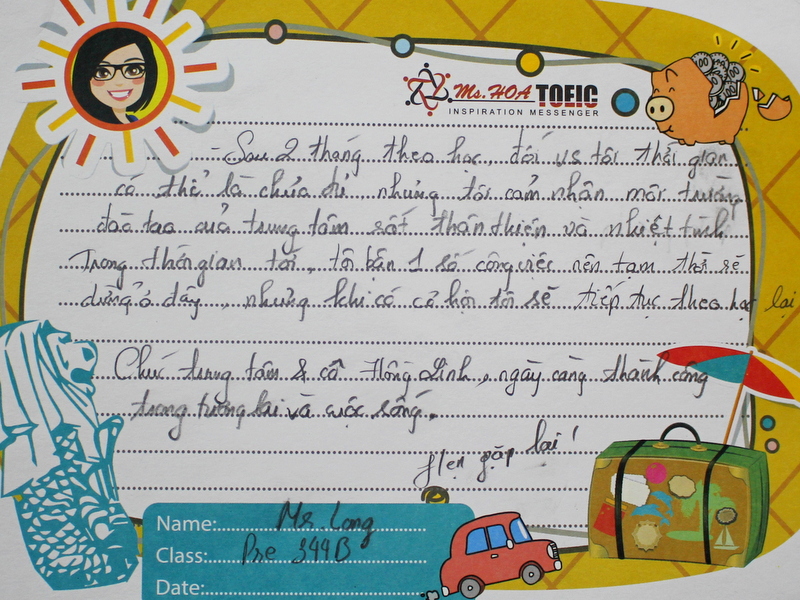 Ms.HOA TOEIC
INSPIRATION MESSENGER
- Sau 2 tháng theo học, đối vs tôi thời gian
có thể là chưa đủ, nhưng tôi cảm nhận môi trường
đào tạo của trung tâm rất thân thiện và nhiệt tình
Trong thời gian tới, tôi bận 1 số công việc nên tạm thời sẽ
dừng ở đây, nhưng khi có cơ hội tôi sẽ tiếp tục theo học lại
Chúc trung tâm & cô Hồng Linh, ngày càng thành công
trong tương lai và cuộc sống.
Hẹn gặp lại!
Name: Mr Long
Class: Pre 344B
Date: